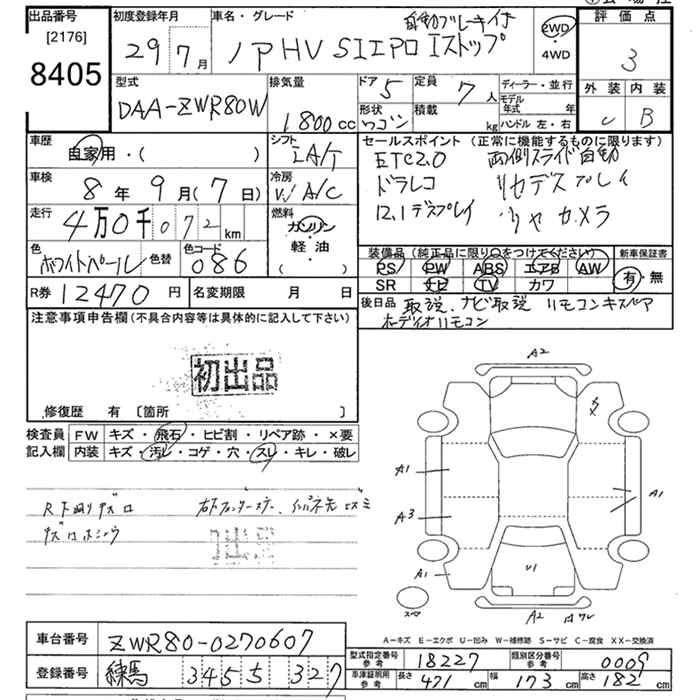 出品番号
[2176]
8405
初度登録年月
29 7月
車名・グレード
自動ブレーキ付
ノア HV SI エアロ Iストップ
2WD・4WD
評価点
3
型式
DAA-ZWR80W
排気量
1800 cc
ドア 5
形状 ワゴン
定員 7人
積載 kg
ディーラー・並行
モデル年式 年
ハンドル 左・右
外装 内装
C B
車歴
自家用・( )
シフト
IA/T
車検
8年 9月(7日)
冷房
W A/C
走行
4万0千072km
燃料
ガソリン・軽油・( )
色
ホワイトパール
色替
色コード
086
R券 12470円
名変期限 月 日
セールスポイント (正常に機能するものに限ります)
ETC2.0 両側スライド自動
ドラレコ リヤディスプレイ
12.1ディスプレイ リヤカメラ
装備品 (純正品に限り○をつけてください)
PS PW ABS エアB AW
SR ナビ TV カワ
新車保証書
有・無
後日品 取説、ナビ取説 リモコンキスペア
オーディオリモコン
注意事項申告欄 (不具合内容等は具体的に記入して下さい)
初出品
修復歴 有 〔箇所 〕
検査員記入欄
FW キズ・飛石・ヒビ割・リペア跡・×要
内装 キズ・汚レ・コゲ・穴・スレ・キレ・破レ
初出品
A2
A1
A3
A1
A1
U1
A2
スペア
A-キズ E-エクボ U-凹み W-補修跡 S-サビ C-腐食 XX-交換済
車台番号 ZWR80-0270607
登録番号 練馬 345 ち 327
型式指定番号 参考 18227
類別区分番号 参考 0009
車庫証明用 参考 長さ 471cm 幅 173cm 高さ 182cm